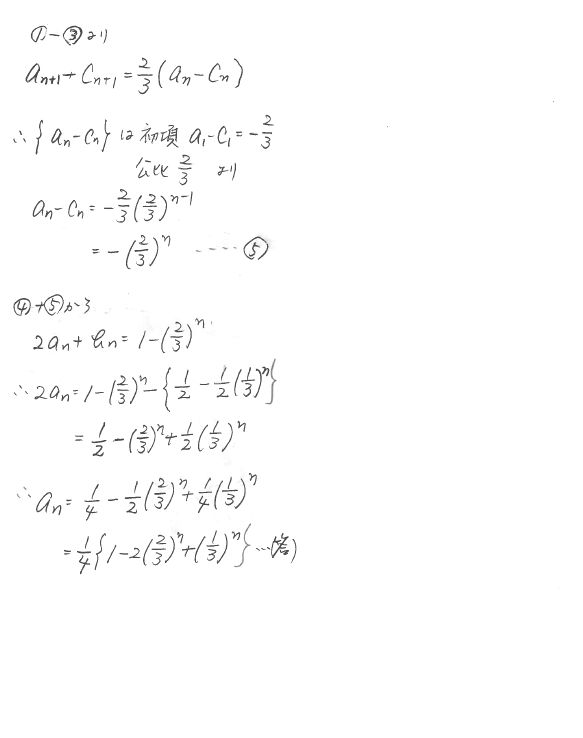 ①-③より
a_{n+1}+C_{n+1}=\frac{2}{3}(a_n-C_n)
∴{a_n-C_n}は初項 a_1-C_1=-\frac{2}{3}
公比 \frac{2}{3} より
a_n-C_n=-\frac{2}{3}(\frac{2}{3})^{n-1}
=-(\frac{2}{3})^n ----⑤
④+⑤から
2a_n+b_n=1-(\frac{2}{3})^n
∴2a_n=1-(\frac{2}{3})^n-{\frac{1}{2}-\frac{1}{2}(\frac{1}{3})^n}
=\frac{1}{2}-(\frac{2}{3})^n+\frac{1}{2}(\frac{1}{3})^n
∴a_n=\frac{1}{4}-\frac{1}{2}(\frac{2}{3})^n+\frac{1}{4}(\frac{1}{3})^n
=\frac{1}{4}{1-2(\frac{2}{3})^n+(\frac{1}{3})^n}…(答)